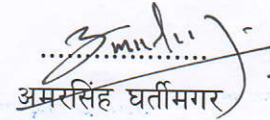 अमरसिंह घर्तीमगर